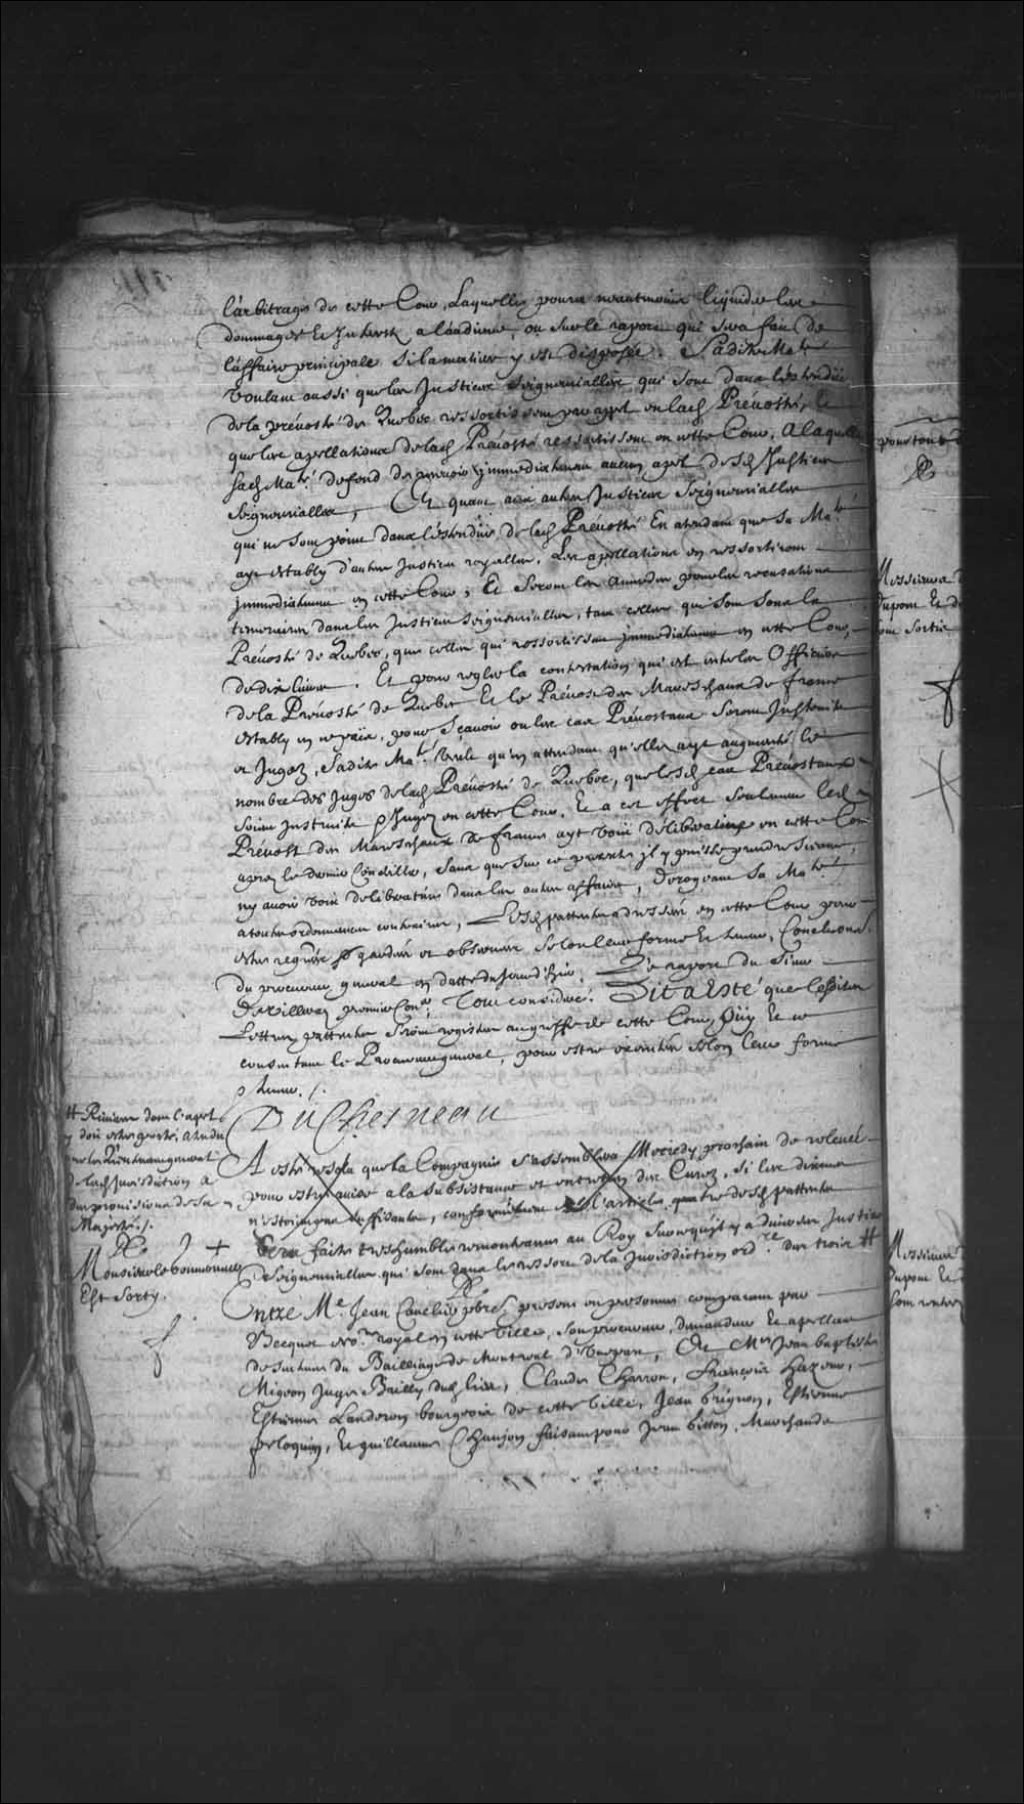 l'arbitrage de cette Cour, Laquelle poura neantmoins liquider les
dommages & Interests a l'audience, ou sur le raport qui sera fait de
l'affaire principale si la matiere y est disposée. Sadite Maté
voulant aussi que les Justices seigneurialles qui sont dans l'estendüe
de la prévosté de Quebec ressortissent par appel en lad Prévosté, &
que les apellations de lad Prévosté ressortissent en cette Cour, A laquelle
sad Maté defend de recevoir immediatement aucun apel desd Justices
seigneurialles, Et quant aux autres Justices seigneurialles
qui ne sont point dans l'estendüe de lad Prévosté En attendant que Sa Maté
aye estably d'autres Justices royalles, Les apellations en ressortiront
immediatement en cette Cour, Et seront les amendes pour les recusations
temeraires dans les Justices seigneurialles, tant celles qui sont sous la
Prévosté de Quebec, que celles qui ressortissent immediatement en cette Cour,
de dix livres. Et pour regler la contestation qui est entre les Officiers
de la Prévosté de Quebec Et le Prévost des Mareschaux de france
estably en ce païs, pour sçavoir ou les cas Prévostaux seront Instruits
et Jugez, Sadite Maté veult qu'en attendant qu'elle aye augmenté le
nombre des Juges de lad Prévosté de Quebec, que lesd cas Prévostaux
soient Instruits & Jugez en cette Cour, Et a cet effect seulement led
Prévost des Mareschaux de france ayt voix déliberative en cette Cour
apres le dernier Conseiller, sans que sur ce pretexte il y puisse prendre seance,
ny avoir voix deliberative dans les autres affaires, dérogeant Sa Maté
a toutes ordonnances contraires, Lesd patentes adressées en cette Cour pour
estre registrées & gardées et observées selon leur forme & teneur, Conclusions
du procureur general en datte du jourd'huy, Le raport du Sieur
de Villeray premier Coner Tout consideré. Dit a Esté que lesdites
Lettres patentes seront registrées au greffe de cette Cour, Oüy & ce
consentant le Procureur general, pour estre executées selon leur forme
& teneur. /.
DuChesneau
A esté resolu que la Compagnie s'assemblera Mercredy prochain de relevée
pour estre avisé a la subsistance et entretien des Curez, si les dixmes
n'estoient pas suffisantes, conformément a l'article quatre desd patentes
Sera faite tres humbles remontrances au Roy sur ce qu'il y a diverses Justices
Seigneurialles qui sont dans le ressort de la Jurisdiction ordre des trois #
# Rivieres dont l'apel
y doit estre porté, attendu
que le Lieutenant general
de lad Jurisdiction a
des provisions de Sa
Majesté. /.
Monsieur le Gouverneur
Est Sorty.
Entre Me Jean Cavelier pbre present en personne comparant par
Becquet Nore royal en cette ville, son procureur, demandeur & apellant
de sentence du Bailliage de Montreal d'une part, Et Mre Jean baptiste
Migeon Juge Bailly dud lieu, Claude Charron, François Hazeur,
Estienne Landeron bourgeois de cette ville, Jean Grignon, Estienne
Peloquin, & guillaume Chanjon faisant pour Jean Gitton, Marchands
pour tout
Messieurs
Dupont &
sont sortis
Messieurs
Dupont &
sont rentrez